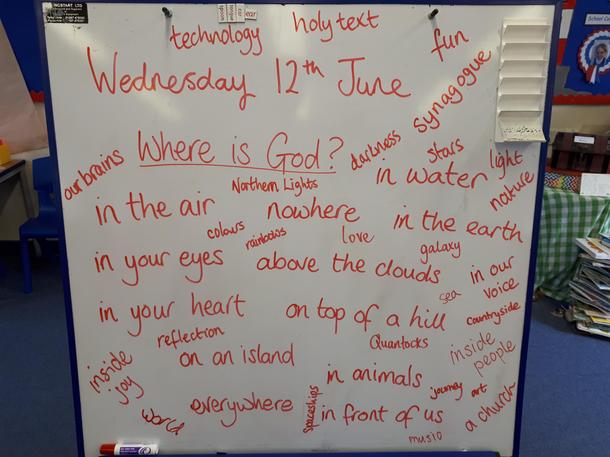 technology
holy text
fun
ear
Wednesday 12th June
synagogue
Where is God?
darkness
stars
our brains
Northern Lights
in water
light
nature
in the air
nowhere
in the earth
colours
rainbows
love
galaxy
in your eyes
above the clouds
in our
voice
sea
in your heart
on top of a hill
countryside
reflection
Quantocks
inside
people
on an island
inside
joy
in animals
journey
art
world
everywhere
spaceships
in front of us
a church
music